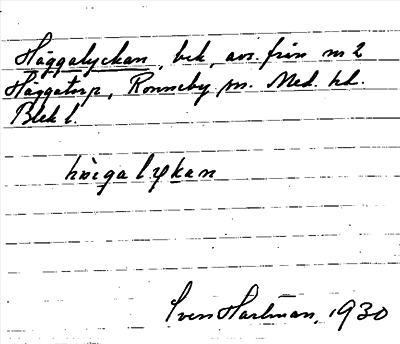 Häggalyckan, bek, avs. från nr 2
Häggatorp, Ronneby sn. Med. hd.
Blek l.
hìega lykan
Sven Hartman, 1930